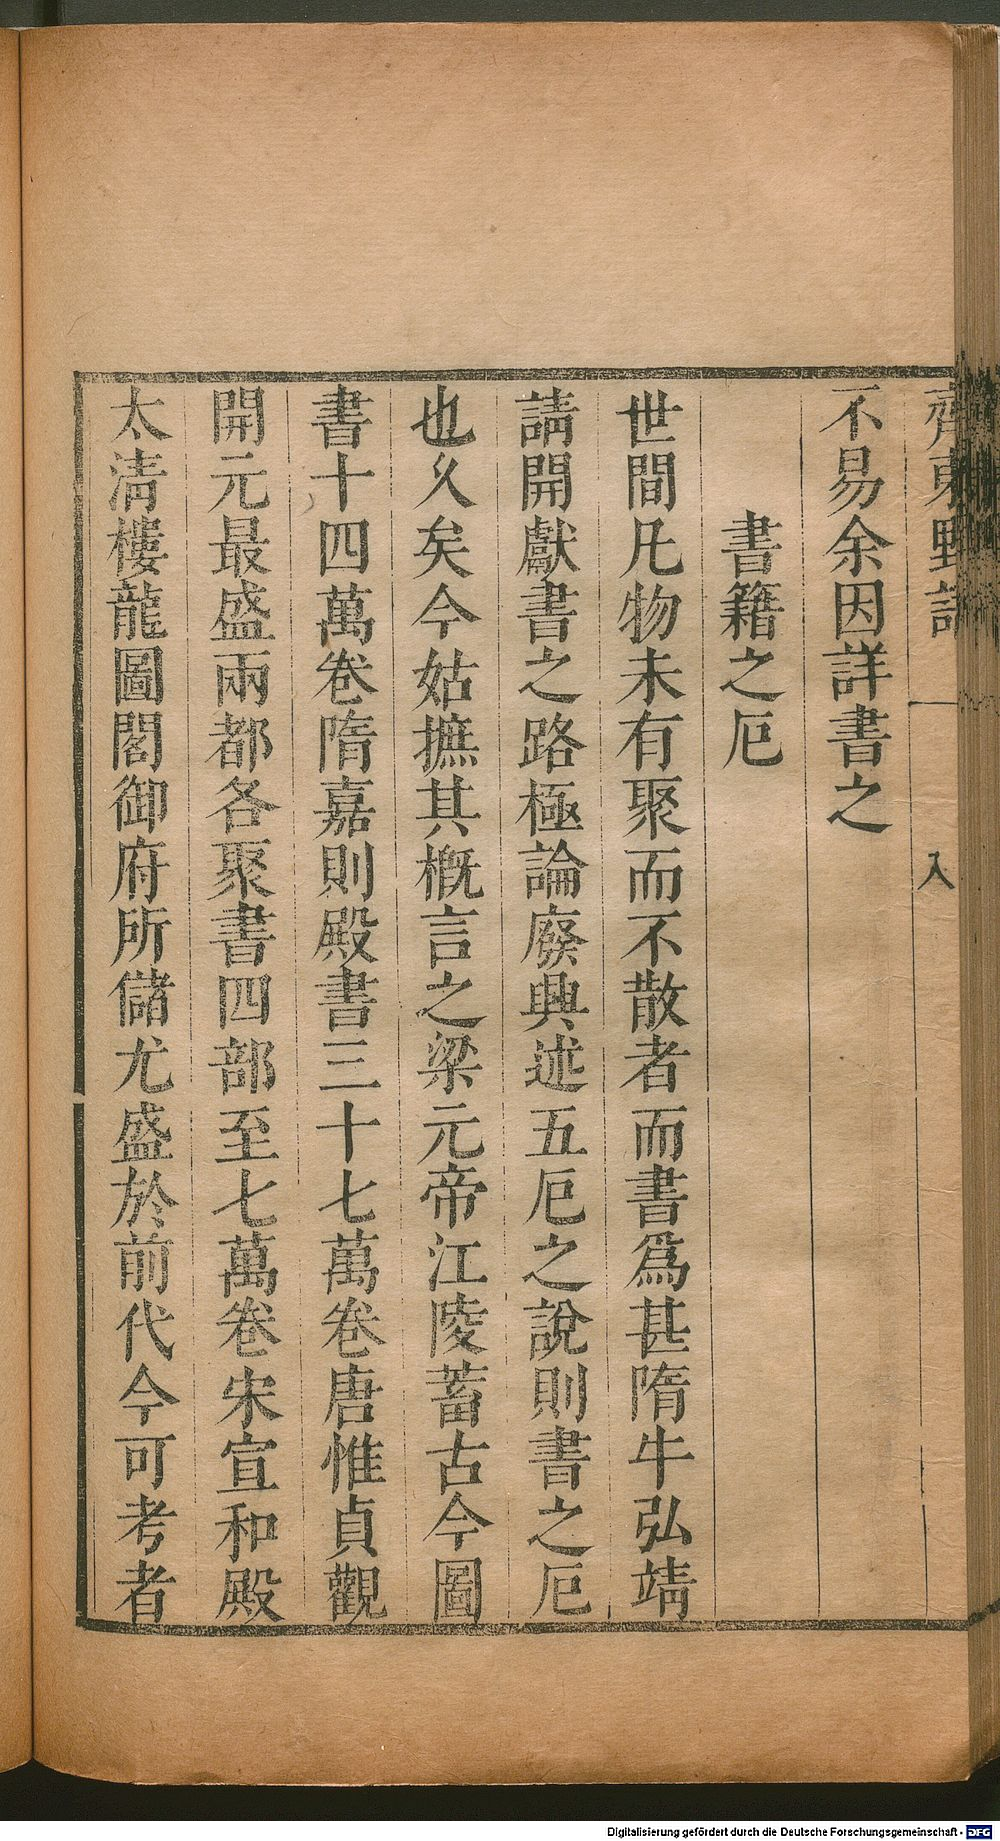 齊東野語 入
不易余因詳書之
書籍之厄
世間凡物未有聚而不散者而書爲甚隋牛弘靖
請開獻書之路極論廢興述五厄之說則書之厄
也久矣今姑摭其槪言之梁元帝江陵蓄古今圖
書十四萬卷隋嘉則殿書三十七萬卷唐惟貞觀
開元最盛兩都各聚書四部至七萬卷宋宣和殿
太淸樓龍圖閣御府所儲尤盛於前代今可考者
Digitalisierung gefördert durch die Deutsche Forschungsgemeinschaft - DFG